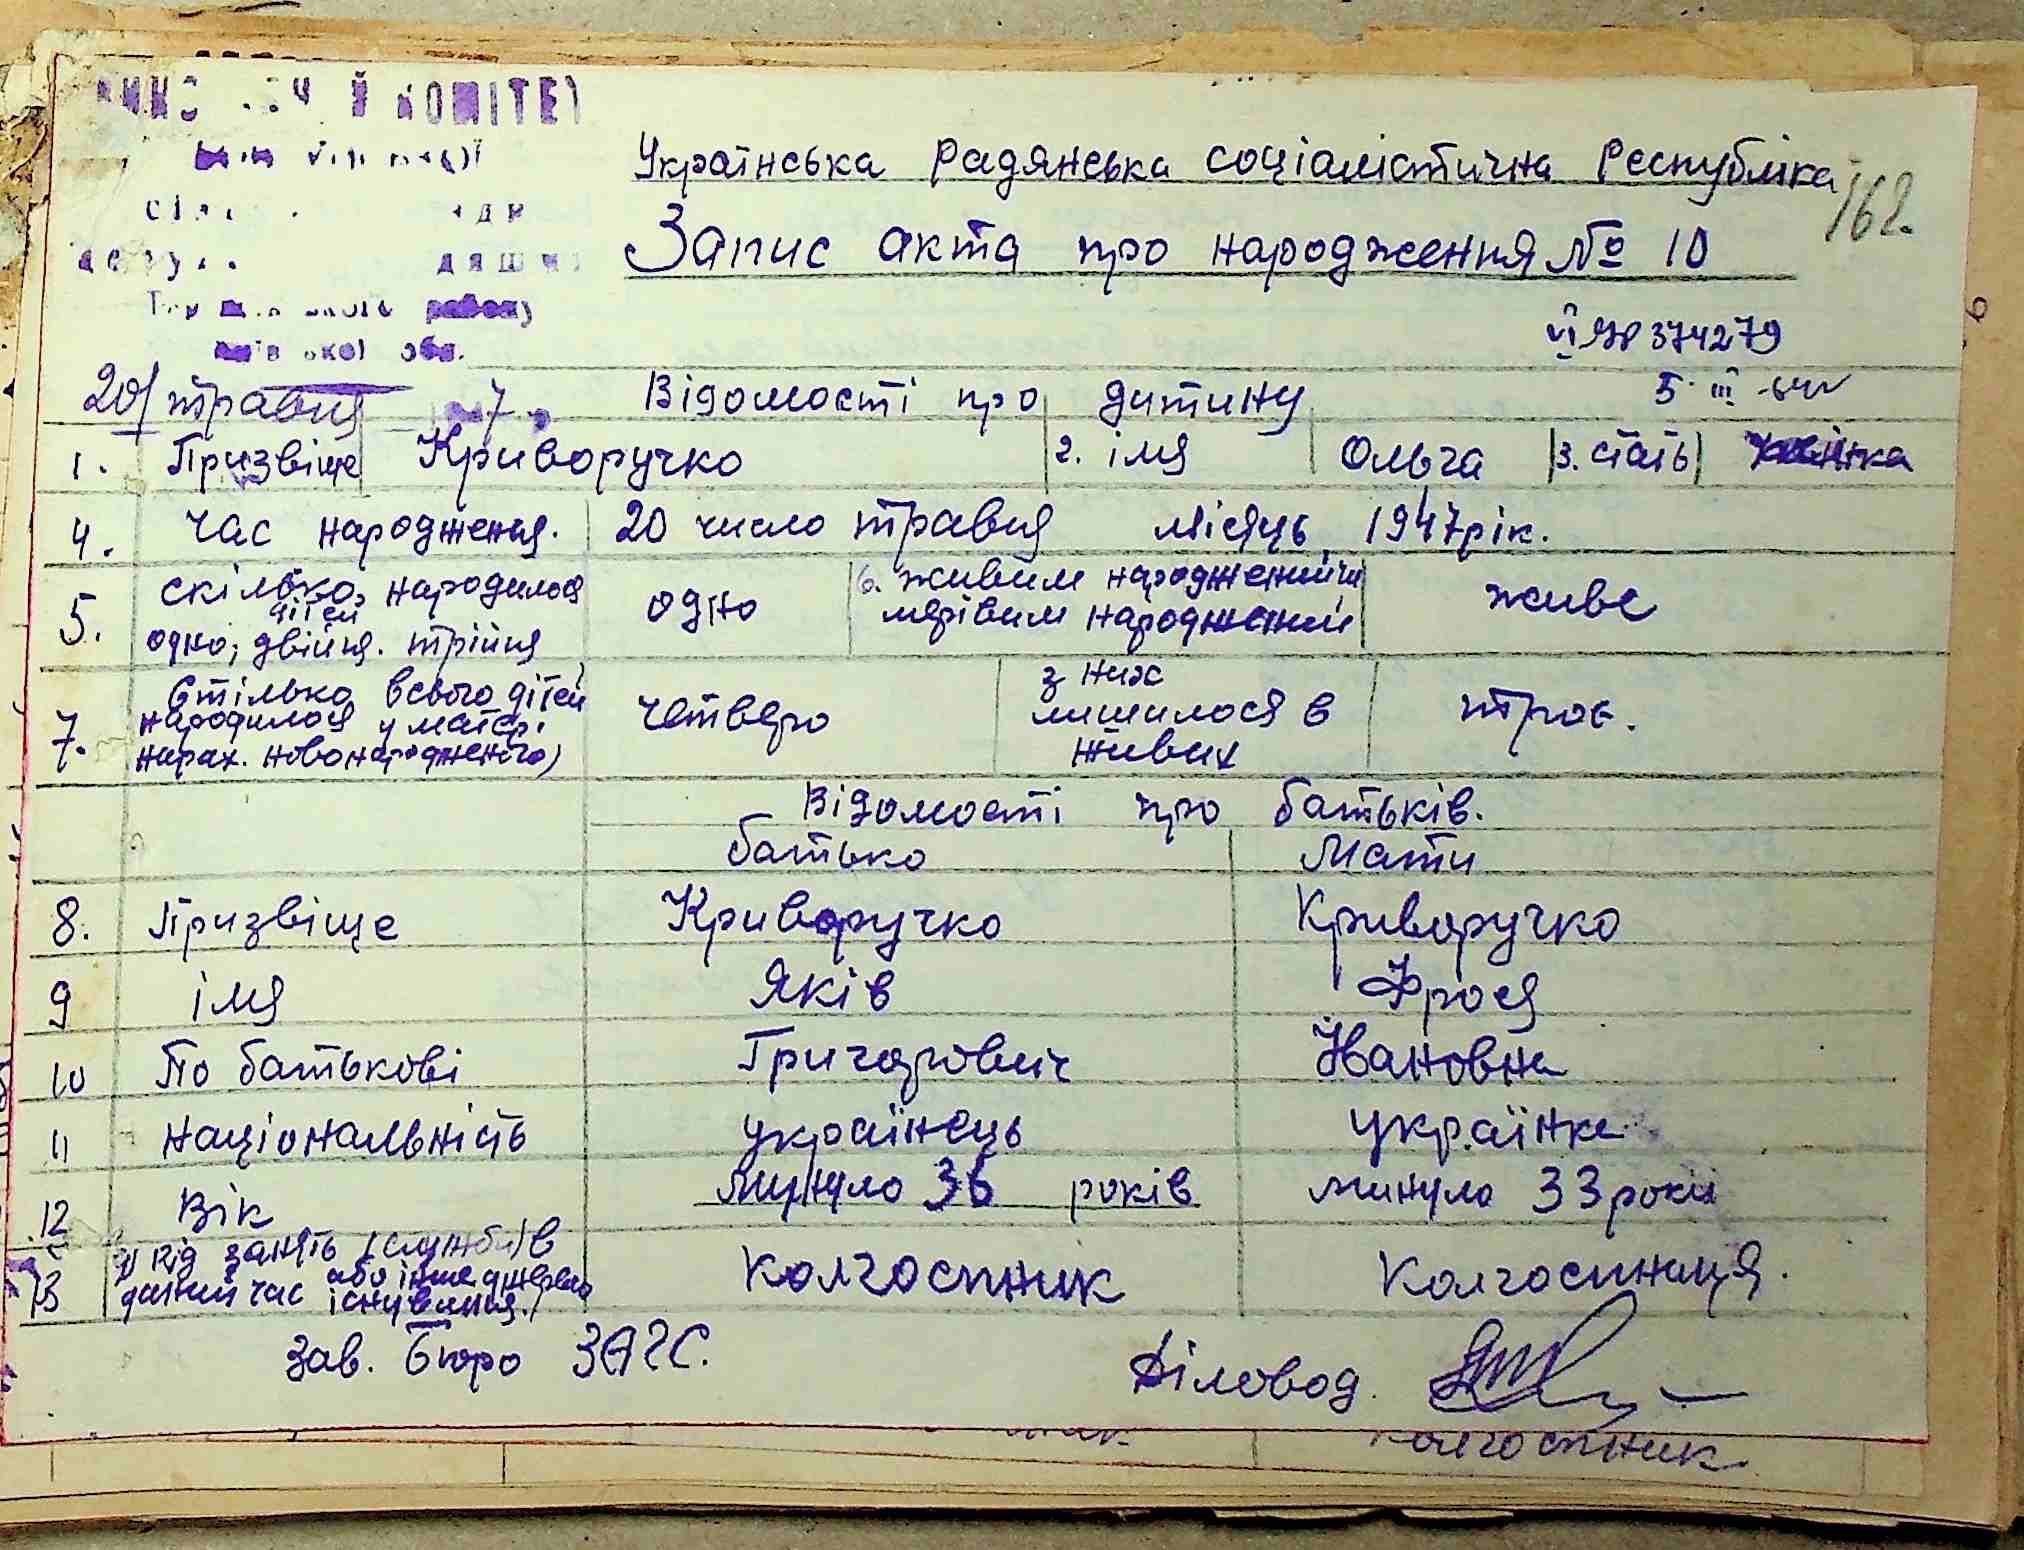 КОМІТЕТ
Українська Радянська соціалістична Республіка
162.
Запис акта про народження № 10
району
обл.
374279
20/ травня 7
Відомості про дитину
5 III
1. Призвіще Криворучко 2. імя Ольга 3. стать жінка
4. час народження. 20 число травня місяць 1947 рік.
5. скілько народилося дітей одно, двійня. трійня
одно
6. живим народжений чи мертвим народжений
живе
7. Стілько всього дітей народилося у матері нарах. новонародженого)
четверо
з них лишилося в живих
троє.
Відомості про батьків.
батько Мати
8. Призвіще Криворучко Криворучко
9 імя Яків Фрося
10 По батькові Григорович Ивановна
11 національність українець українка
12 Вік минуло 36 років минуло 33 роки
13 рід занять (служби) в даний час або інше джерело існування.)
колгоспник колгоспниця.
Зав. бюро ЗАГС. Діловод.
колгоспник